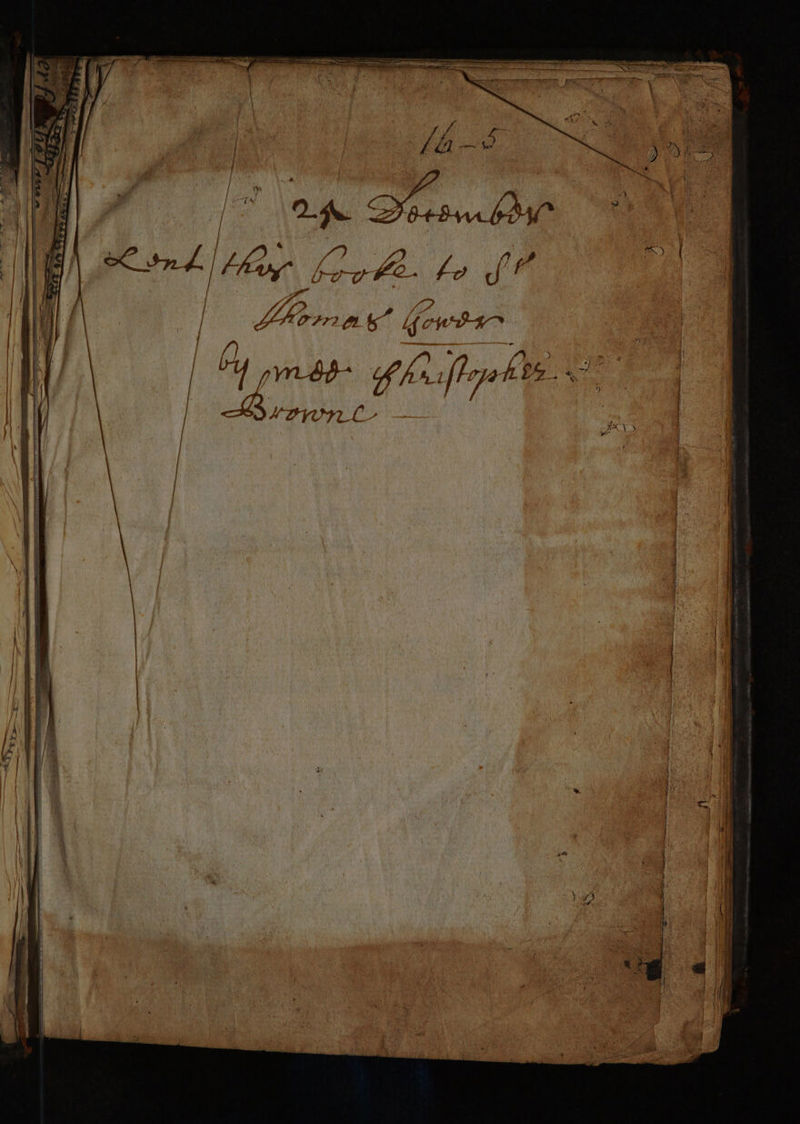 16-5
December
Lent this booke to Sr
Thomas Gower
by mee Christopher
Browne